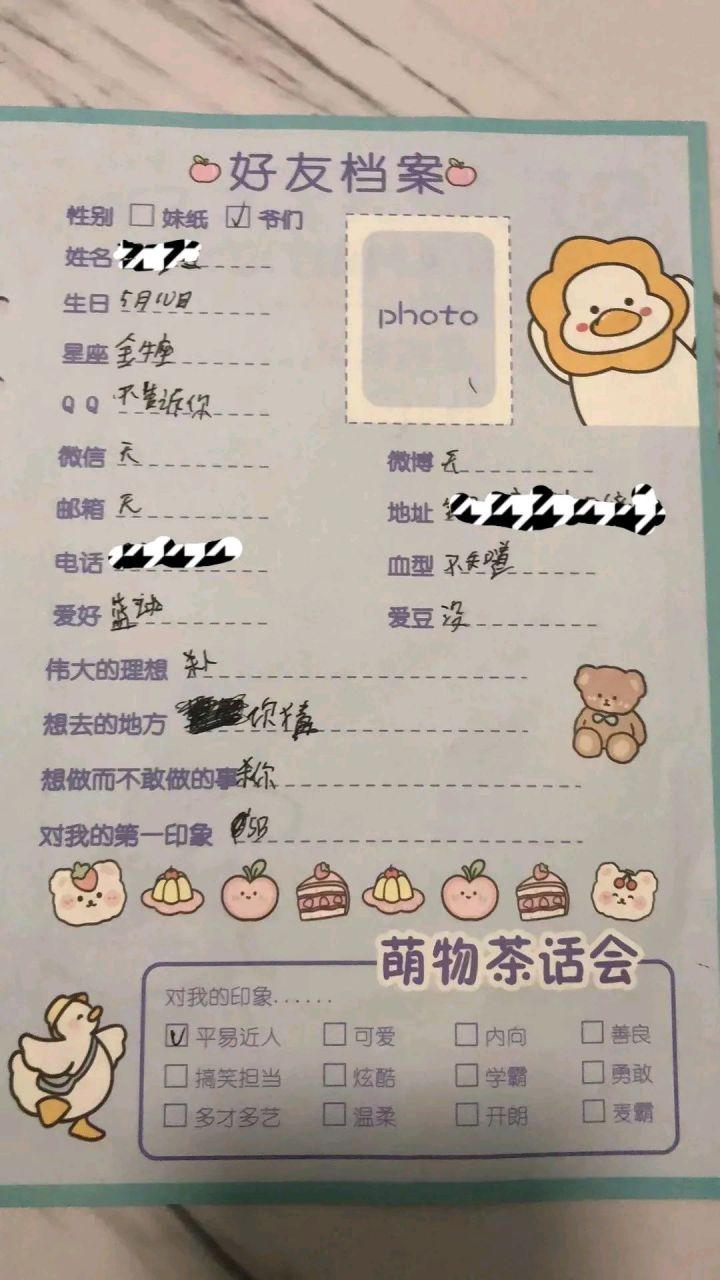 好友档案
性别 妹纸 爷们
姓名
photo
生日 5月10日
星座 金牛座
QQ 不告诉你
微信 无
微博 无
邮箱 无
地址
电话
血型 不知道
爱好 篮球
爱豆 没
伟大的理想
想去的地方 你猜
想做而不敢做的事 杀你
对我的第一印象 SB
萌物茶话会
对我的印象......
平易近人 可爱 内向 善良
搞笑担当 炫酷 学霸 勇敢
多才多艺 温柔 开朗 麦霸